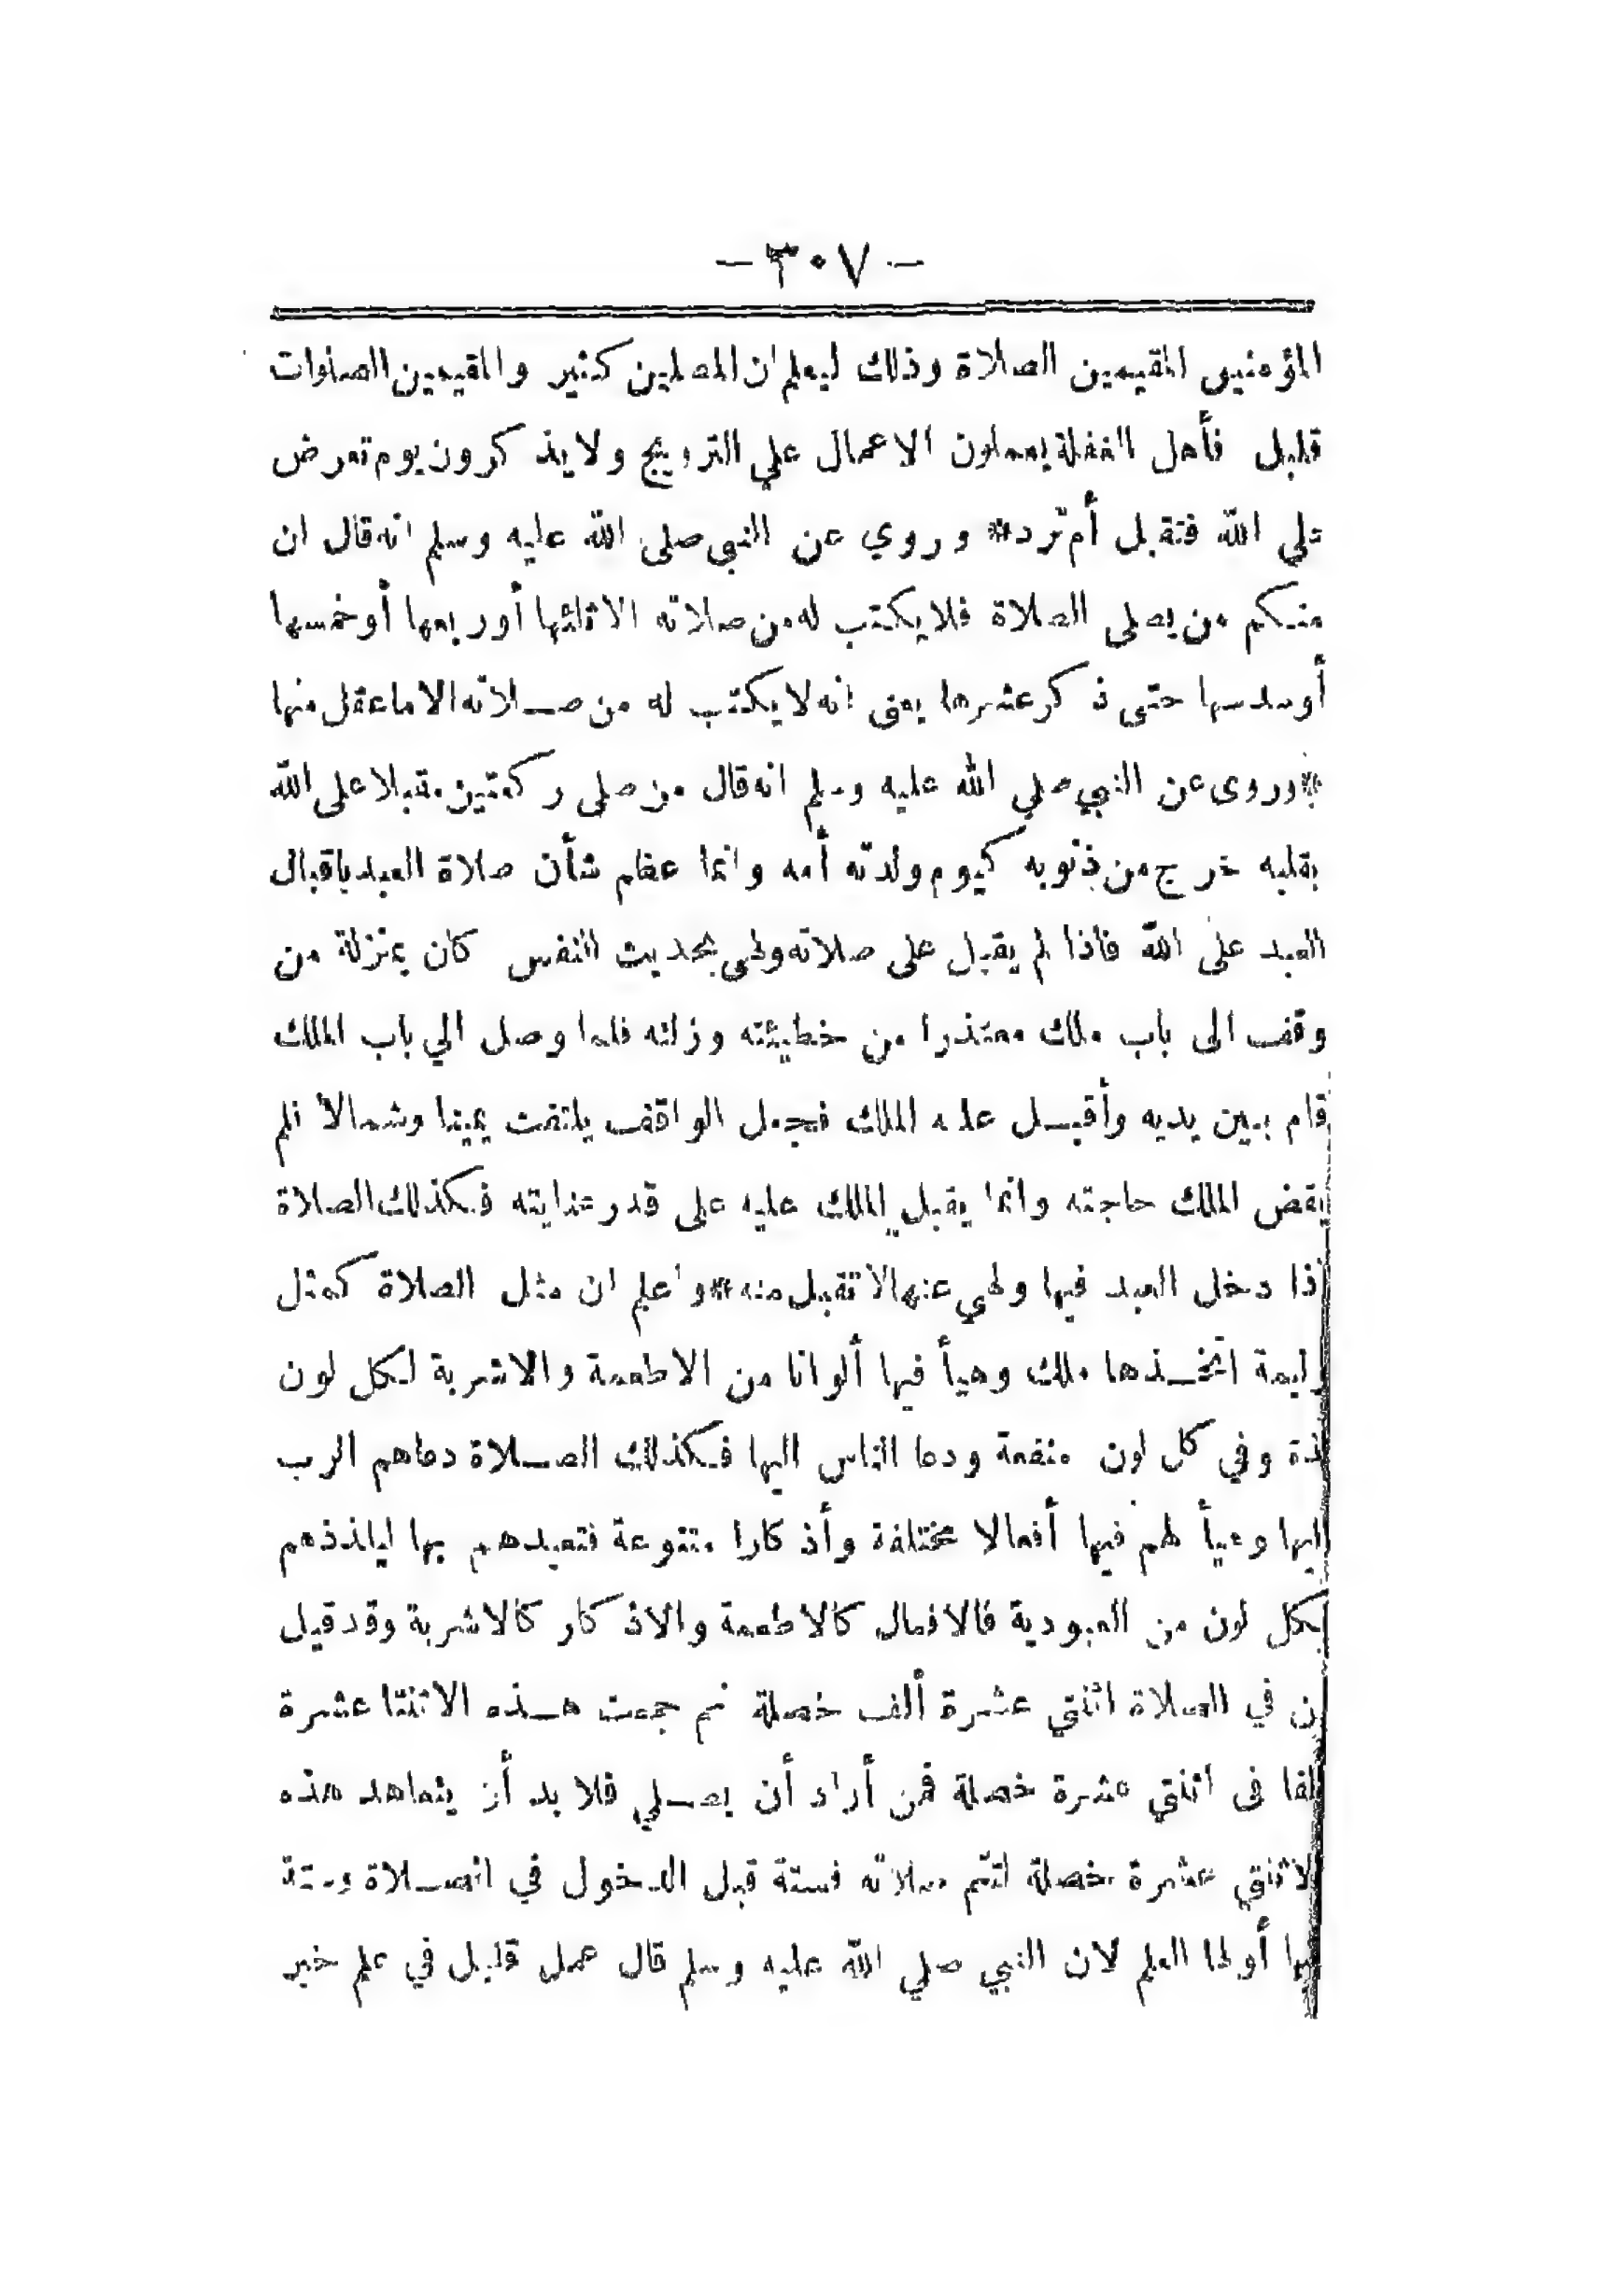 - ٣٠٧ -
المؤمنين المقيمين الصلاة وذلك ليعلم ان المصلين كثير والمقيمين الصلوات
قليل فأهل الغفلة يعملون الاعمال علي الترويج ولا يذكرون يوم تعرض
علي الله فتقبل أم ترد * وروي عن النبي صلى الله عليه وسلم انه قال ان
منكم من يصلى الصلاة فلا يكتب له من صلاته الا ثلثها أو ربعها أو خمسها
أو سدسها حتى ذكر عشرها يعنى انه لا يكتب له من صلاته الا ما عقل منها
* وروى عن النبي صلي الله عليه وسلم انه قال من صلى ركعتين مقبلا على الله
بقلبه خرج من ذنوبه كيوم ولدته أمه وانما عظم شأن صلاة العبد باقبال
العبد على الله فاذا لم يقبل على صلاته ولهى بحديث النفس كان بمنزلة من
وقف الى باب ملك معتذرا من خطيئته وزلته فلما وصل الي باب الملك
قام بين يديه وأقبل عليه الملك فجعل الواقف يلتفت يمينا وشمالا فلم
يقض الملك حاجته وانما يقبل الملك عليه على قدر عنايته فكذلك الصلاة
اذا دخل العبد فيها ولهي عنها لا تقبل منه * واعلم ان مثل الصلاة كمثل
وليمة اتخذها ملك وهيأ فيها ألوانا من الاطعمة والاشربة لكل لون
لذة وفي كل لون منفعة ودعا الناس اليها فكذلك الصلاة دعاهم الرب
اليها وهيأ لهم فيها أفعالا مختلفة وأذكارا متنوعة فتعبدهم بها ليلذذهم
بكل لون من العبودية فالافعال كالاطعمة والاذكار كالاشربة وقد قيل
ان في الصلاة اثنتي عشرة ألف خصلة ثم جمعت هذه الاثنتا عشرة
ألفا فى اثنتي عشرة خصلة فمن أراد أن يصلي فلا بد أن يتعاهد هذه
الاثنتي عشرة خصلة لتتم صلاته فستة قبل الدخول في الصلاة وستة
فيها أولها العلم لان النبي صلي الله عليه وسلم قال عمل قليل في علم خير